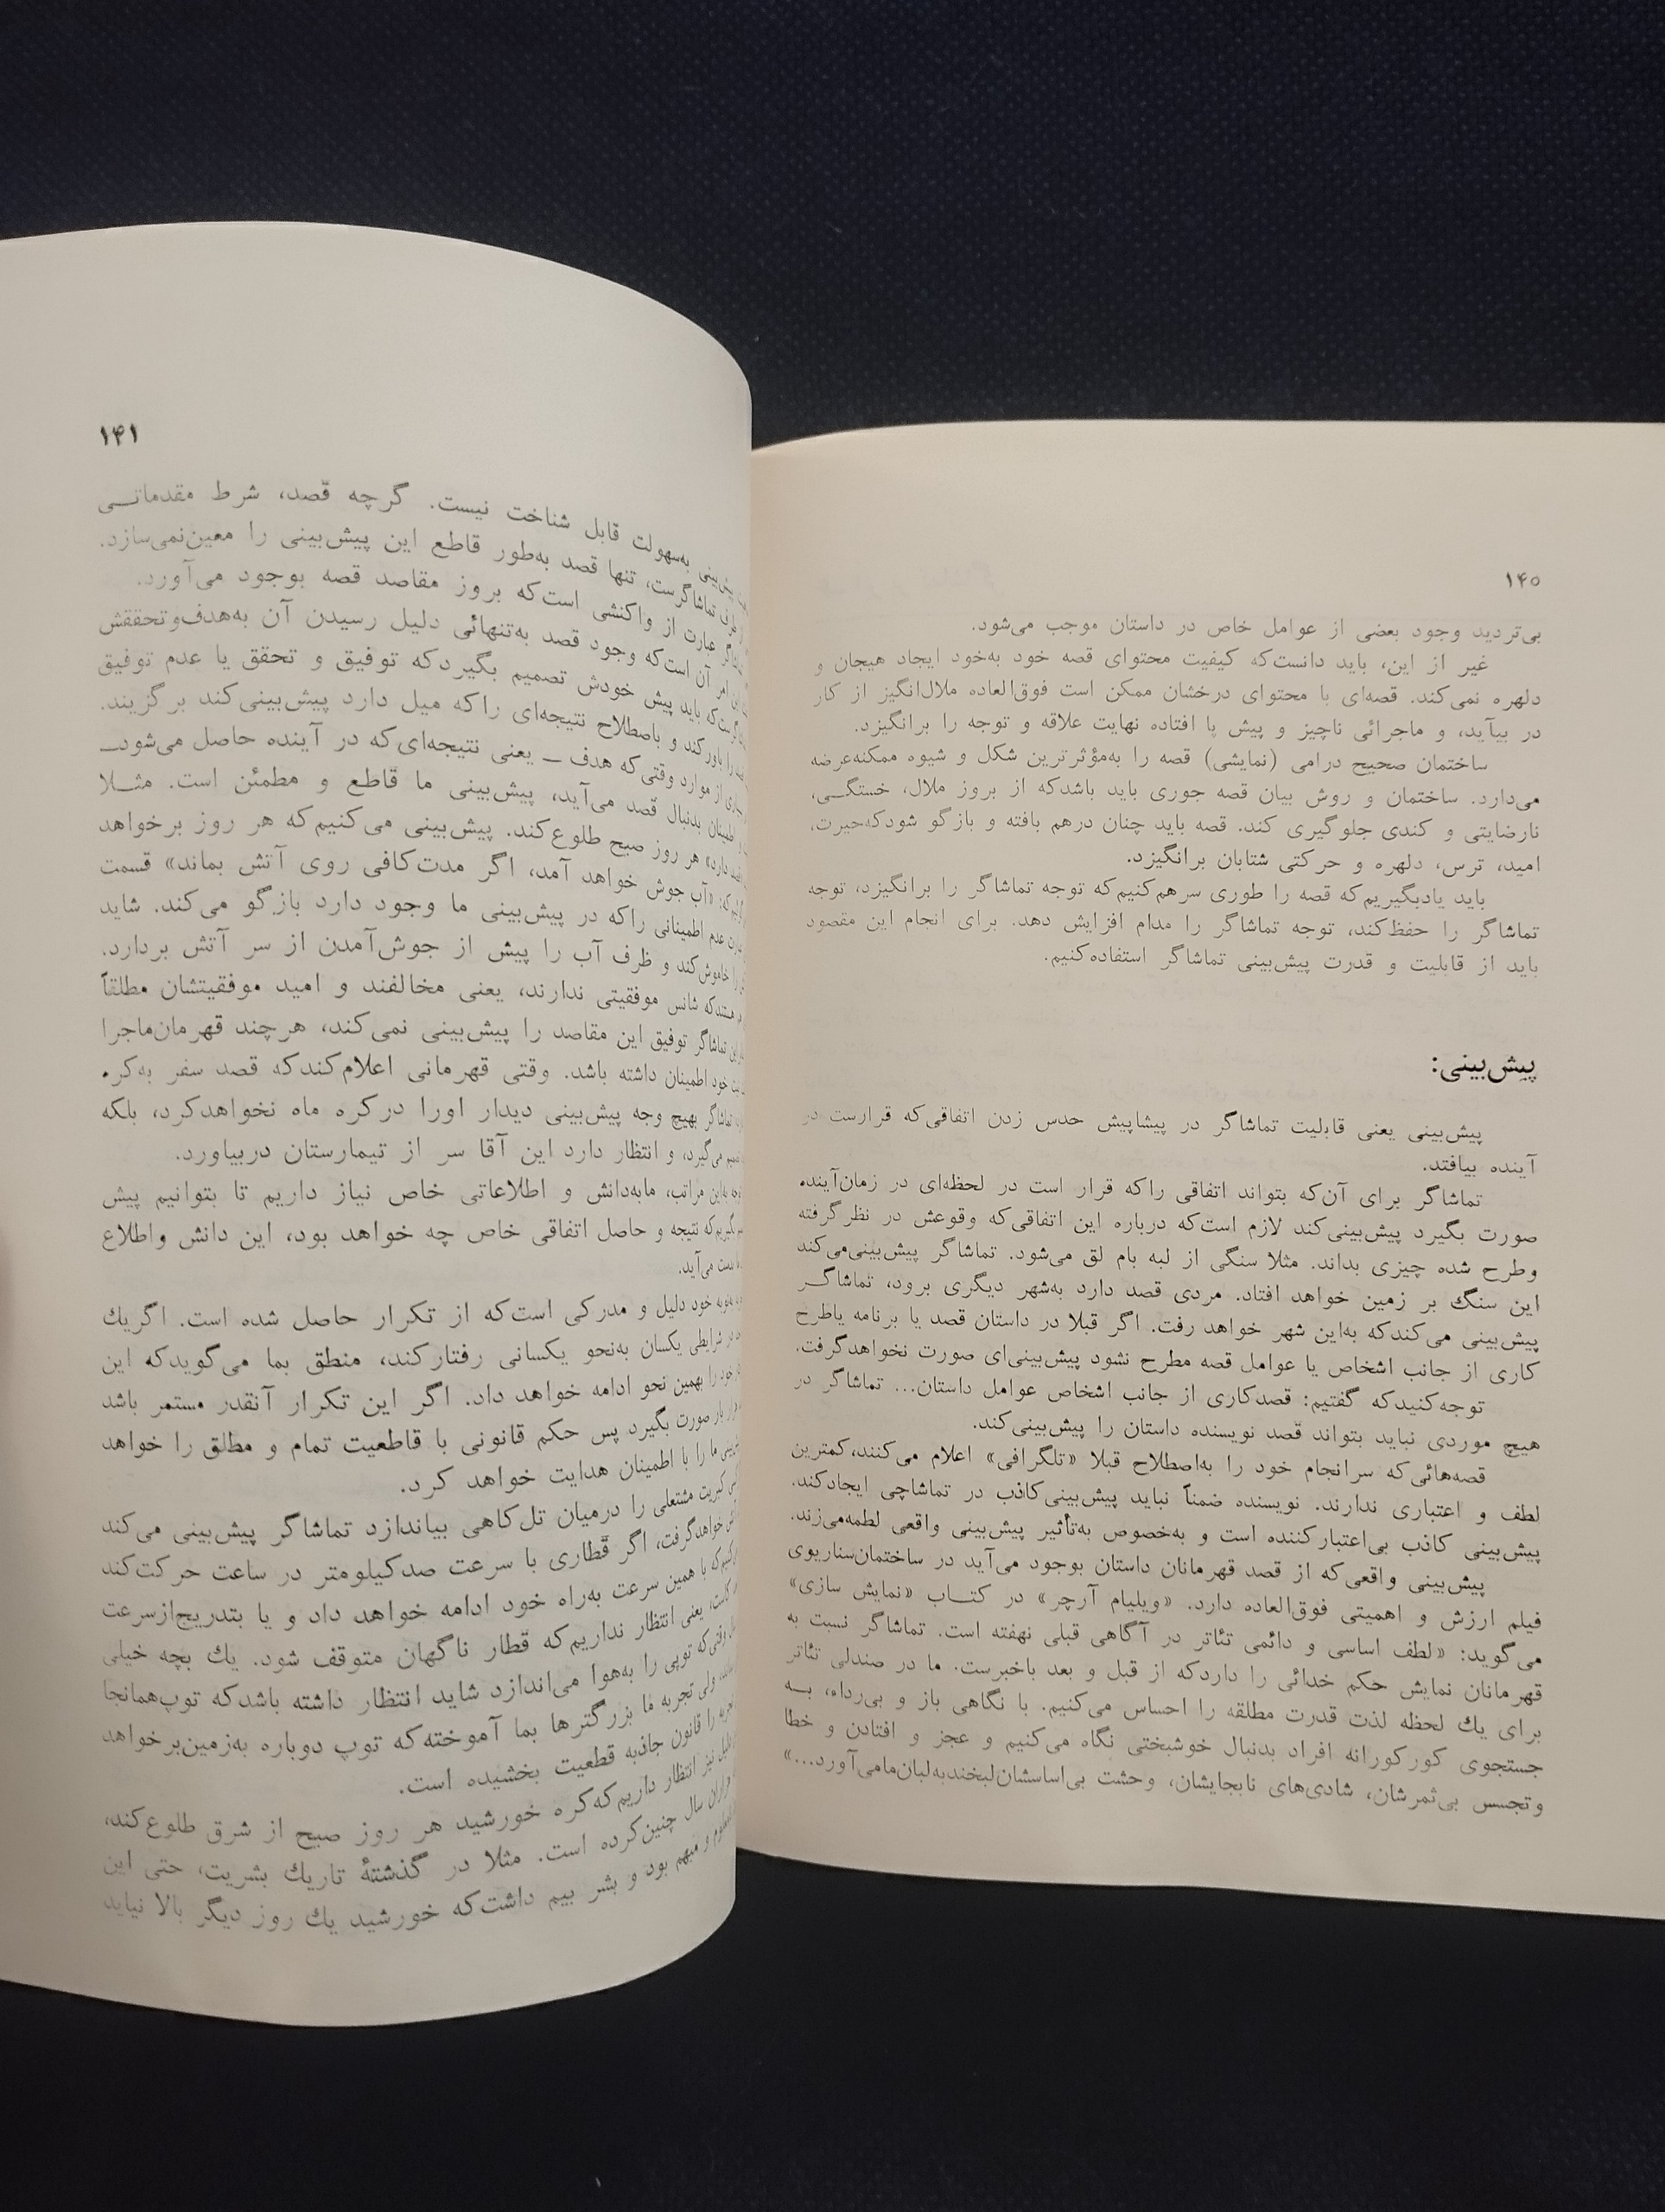 ۱۴۰
بی‌تردید وجود بعضی از عوامل خاص در داستان موجب می‌شود.
غیر از این، باید دانست‌که کیفیت محتوای قصه خود به‌خود ایجاد هیجان و
دلهره نمی‌کند. قصه‌ای با محتوای درخشان ممکن است فوق‌العاده ملال‌انگیز از کار
در بیآید، و ماجرائی ناچیز و پیش پا افتاده نهایت علاقه و توجه را برانگیزد.
ساختمان صحیح درامی (نمایشی) قصه را به‌مؤثرترین شکل و شیوه ممکنه‌عرضه
می‌دارد. ساختمان و روش بیان قصه جوری باید باشدکه از بروز ملال، خستگی،
نارضایتی و کندی جلوگیری کند. قصه باید چنان درهم بافته و بازگو شودکه‌حیرت،
امید، ترس، دلهره و حرکتی شتابان برانگیزد.
باید یادبگیریم‌که قصه را طوری سرهم‌کنیم‌که توجه تماشاگر را برانگیزد، توجه
تماشاگر را حفظ‌کند، توجه تماشاگر را مدام افزایش دهد. برای انجام این مقصود
باید از قابلیت و قدرت پیش‌بینی تماشاگر استفاده‌کنیم.
پیش‌بینی:
پیش‌بینی یعنی قابلیت تماشاگر در پیشاپیش حدس زدن اتفاقی‌که قرارست در
آینده بیافتد.
تماشاگر برای آن‌که بتواند اتفاقی راکه قرار است در لحظه‌ای در زمان‌آینده
صورت بگیرد پیش‌بینی‌کند لازم است‌که درباره این اتفاقی‌که وقوعش در نظرگرفته
وطرح شده چیزی بداند. مثلا سنگی از لبه بام لق می‌شود. تماشاگر پیش‌بینی‌می‌کند
این سنگ بر زمین خواهد افتاد. مردی قصد دارد به‌شهر دیگری برود، تماشاگر
پیش‌بینی می‌کندکه به‌این شهر خواهد رفت. اگر قبلا در داستان قصد یا برنامه یاطرح
کاری از جانب اشخاص یا عوامل قصه مطرح نشود پیش‌بینی‌ای صورت نخواهدگرفت.
توجه‌کنیدکه گفتیم: قصدکاری از جانب اشخاص عوامل داستان... تماشاگر در
هیچ موردی نباید بتواند قصد نویسنده داستان را پیش‌بینی‌کند.
قصه‌هائی‌که سرانجام خود را به‌اصطلاح قبلا «تلگرافی» اعلام می‌کنند،کمترین
لطف و اعتباری ندارند. نویسنده ضمناً نباید پیش‌بینی‌کاذب در تماشاچی ایجادکند.
پیش‌بینی کاذب بی‌اعتبارکننده است و به‌خصوص به‌تأثیر پیش‌بینی واقعی لطمه‌می‌زند.
پیش‌بینی واقعی‌که از قصد قهرمانان داستان بوجود می‌آید در ساختمان‌سناریوی
فیلم ارزش و اهمیتی فوق‌العاده دارد. «ویلیام آرچر» در کتاب «نمایش سازی»
می‌گوید: «لطف اساسی و دائمی تئاتر در آگاهی قبلی نهفته است. تماشاگر نسبت به
قهرمانان نمایش حکم خدائی را داردکه از قبل و بعد باخبرست. ما در صندلی تئاتر
برای یك لحظه لذت قدرت مطلقه را احساس می‌کنیم. با نگاهی باز و بی‌رداء، به
جستجوی کورکورانه افراد بدنبال خوشبختی نگاه می‌کنیم و عجز و افتادن و خطا
وتجسس بی‌ثمرشان، شادی‌های نابجایشان، وحشت بی‌اساسشان‌لبخندبه‌لبان‌مامی‌آورد...»
۱۴۱
پیش‌بینی به‌سهولت قابل شناخت نیست. گرچه قصد، شرط مقدماتی
طرف تماشاگرست، تنها قصد به‌طور قاطع این پیش‌بینی را معین‌نمی‌سازد.
عبارت از واکنشی است‌که بروز مقاصد قصه بوجود می‌آورد.
این امر آن است‌که وجود قصد به‌تنهائی دلیل رسیدن آن به‌هدف‌وتحققش
باید پیش خودش تصمیم بگیردکه توفیق و تحقق یا عدم توفیق
را باورکند و باصطلاح نتیجه‌ای راکه میل دارد پیش‌بینی‌کند برگزیند.
از موارد وقتی‌که هدف ـ یعنی نتیجه‌ای‌که در آینده حاصل می‌شودـ
اطمینان بدنبال قصد می‌آید، پیش‌بینی ما قاطع و مطمئن است. مثلا
دارد» هر روز صبح طلوع‌کند. پیش‌بینی می‌کنیم‌که هر روز برخواهد
«آب جوش خواهد آمد، اگر مدت‌کافی روی آتش بماند» قسمت
عدم اطمینانی راکه در پیش‌بینی ما وجود دارد بازگو می‌کند. شاید
را خاموش‌کند و ظرف آب را پیش از جوش‌آمدن از سر آتش بردارد.
هستندکه شانس موفقیتی ندارند، یعنی مخالفند و امید موفقیتشان مطلقاً
تماشاگر توفیق این مقاصد را پیش‌بینی نمی‌کند، هرچند قهرمان‌ماجرا
خود اطمینان داشته باشد. وقتی قهرمانی اعلام‌کندکه قصد سفر به‌کره
تماشاگر بهیچ وجه پیش‌بینی دیدار اورا درکره ماه نخواهدکرد، بلکه
می‌گیرد، و انتظار دارد این آقا سر از تیمارستان دربیاورد.
به‌این مراتب، مابه‌دانش و اطلاعاتی خاص نیاز داریم تا بتوانیم پیش
نتیجه و حاصل اتفاقی خاص چه خواهد بود، این دانش واطلاع
بدست می‌آید.
خود دلیل و مدرکی است‌که از تکرار حاصل شده است. اگریك
در شرایطی یکسان به‌نحو یکسانی رفتارکند، منطق بما می‌گویدکه این
خود را بهمین نحو ادامه خواهد داد. اگر این تکرار آنقدر مستمر باشد
بار صورت بگیرد پس حکم قانونی با قاطعیت تمام و مطلق را خواهد
ما را با اطمینان هدایت خواهد کرد.
کبریت مشتعلی را درمیان تل‌کاهی بیاندازد تماشاگر پیش‌بینی می‌کند
خواهدگرفت، اگر قطاری با سرعت صدکیلومتر در ساعت حرکت‌کند
با همین سرعت به‌راه خود ادامه خواهد داد و یا بتدریج‌ازسرعت
یعنی انتظار نداریم‌که قطار ناگهان متوقف شود. یك بچه خیلی
وقتی‌که توپی را به‌هوا می‌اندازد شاید انتظار داشته باشدکه توپ‌همانجا
ولی تجربه ما بزرگترها بما آموخته‌که توپ دوباره به‌زمین‌برخواهد
را قانون جاذبه قطعیت بخشیده است.
نیز انتظار داریم‌که‌کره خورشید هر روز صبح از شرق طلوع‌کند،
هزاران سال چنین‌کرده است. مثلا در گذشتهٔ تاریك بشریت، حتی این
و مبهم بود و بشر بیم داشت‌که خورشید یك روز دیگر بالا نیاید